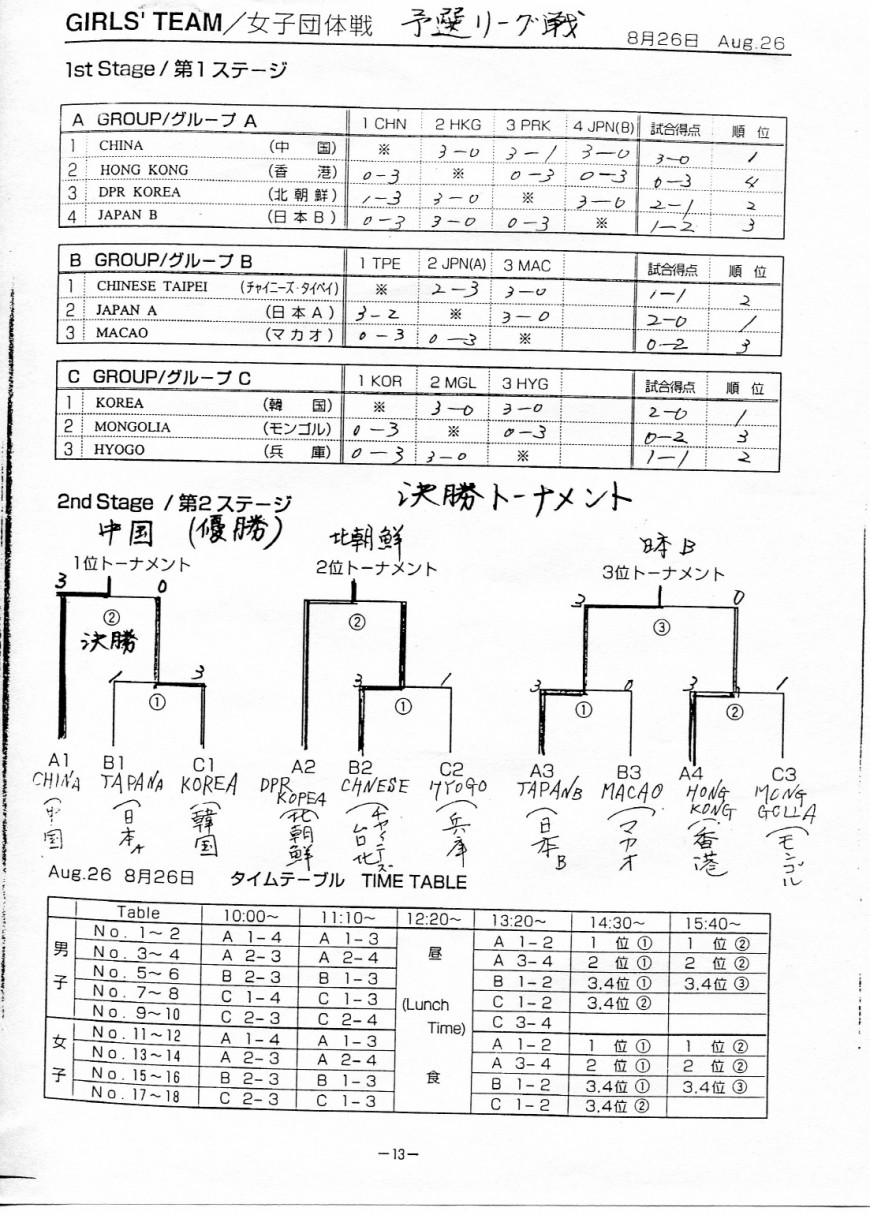 GIRLS' TEAM／女子団体戦 予選リーグ戦 8月26日 Aug.26
1st Stage / 第1ステージ
A GROUP/グループ A 1 CHN 2 HKG 3 PRK 4 JPN(B) 試合得点 順 位
1 CHINA (中 国) ※ 3-0 3-1 3-0 3-0 1
2 HONG KONG (香 港) 0-3 ※ 0-3 0-3 0-3 4
3 DPR KOREA (北 朝 鮮) 1-3 3-0 ※ 3-0 2-1 2
4 JAPAN B (日 本 B) 0-3 3-0 0-3 ※ 1-2 3
B GROUP/グループ B 1 TPE 2 JPN(A) 3 MAC 試合得点 順 位
1 CHINESE TAIPEI (チャイニーズ・タイペイ) ※ 2-3 3-0 1-1 2
2 JAPAN A (日 本 A) 3-2 ※ 3-0 2-0 1
3 MACAO (マ カ オ) 0-3 0-3 ※ 0-2 3
C GROUP/グループ C 1 KOR 2 MGL 3 HYG 試合得点 順 位
1 KOREA (韓 国) ※ 3-0 3-0 2-0 1
2 MONGOLIA (モンゴル) 0-3 ※ 0-3 0-2 3
3 HYOGO (兵 庫) 0-3 3-0 ※ 1-1 2
2nd Stage / 第2ステージ 決勝トーナメント
中国 (優勝) 北朝鮮 日本 B
1位トーナメント 2位トーナメント 3位トーナメント
3 0 3 0
② ② ③
決勝
1 3 3 1 3 0 3 1
① ① ① ②
A1 B1 C1 A2 B2 C2 A3 B3 A4 C3
CHINA JAPANA KOREA DPR KOREA CHNESE HYOGO JAPANB MACAO HONG KONG MONG GOLIA
(中国 (日本A (韓国 (北朝鮮 (チャイニーズ 台北 (兵庫 (日本B (マカオ (香港 (モンゴル
Aug.26 8月26日 タイムテーブル TIME TABLE
Table 10:00~ 11:10~ 12:20~ 13:20~ 14:30~ 15:40~
男子
No. 1~2 A 1-4 A 1-3 A 1-2 1 位 ① 1 位 ②
No. 3~4 A 2-3 A 2-4 A 3-4 2 位 ① 2 位 ②
No. 5~6 B 2-3 B 1-3 B 1-2 3,4位 ① 3,4位 ③
No. 7~8 C 1-4 C 1-3 C 1-2 3,4位 ②
No. 9~10 C 2-3 C 2-4 C 3-4
昼 (Lunch Time) 食
女子
No. 11~12 A 1-4 A 1-3 A 1-2 1 位 ① 1 位 ②
No. 13~14 A 2-3 A 2-4 A 3-4 2 位 ① 2 位 ②
No. 15~16 B 2-3 B 1-3 B 1-2 3,4位 ① 3,4位 ③
No. 17~18 C 2-3 C 1-3 C 1-2 3,4位 ②
-13-